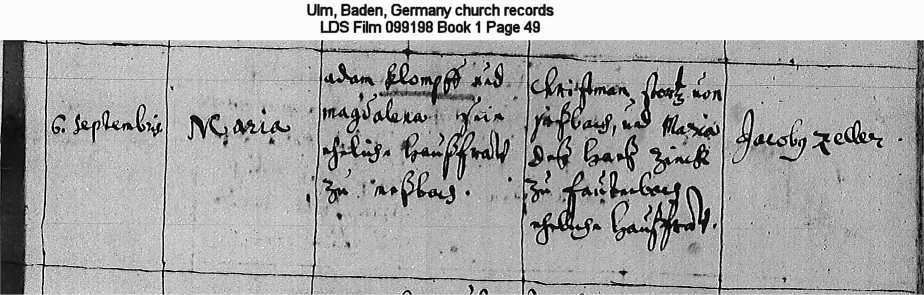 Ulm, Baden, Germany church records
LDS Film 099198 Book 1 Page 49
6. Septembris
Maria
adam klompff und
magdalena sein
eheliche Haußfraw
zu
Christman von
und Maria
deß Hanß Zinck
zu fautenbach
eheliche Haußfraw.
Jacobus Zeller.